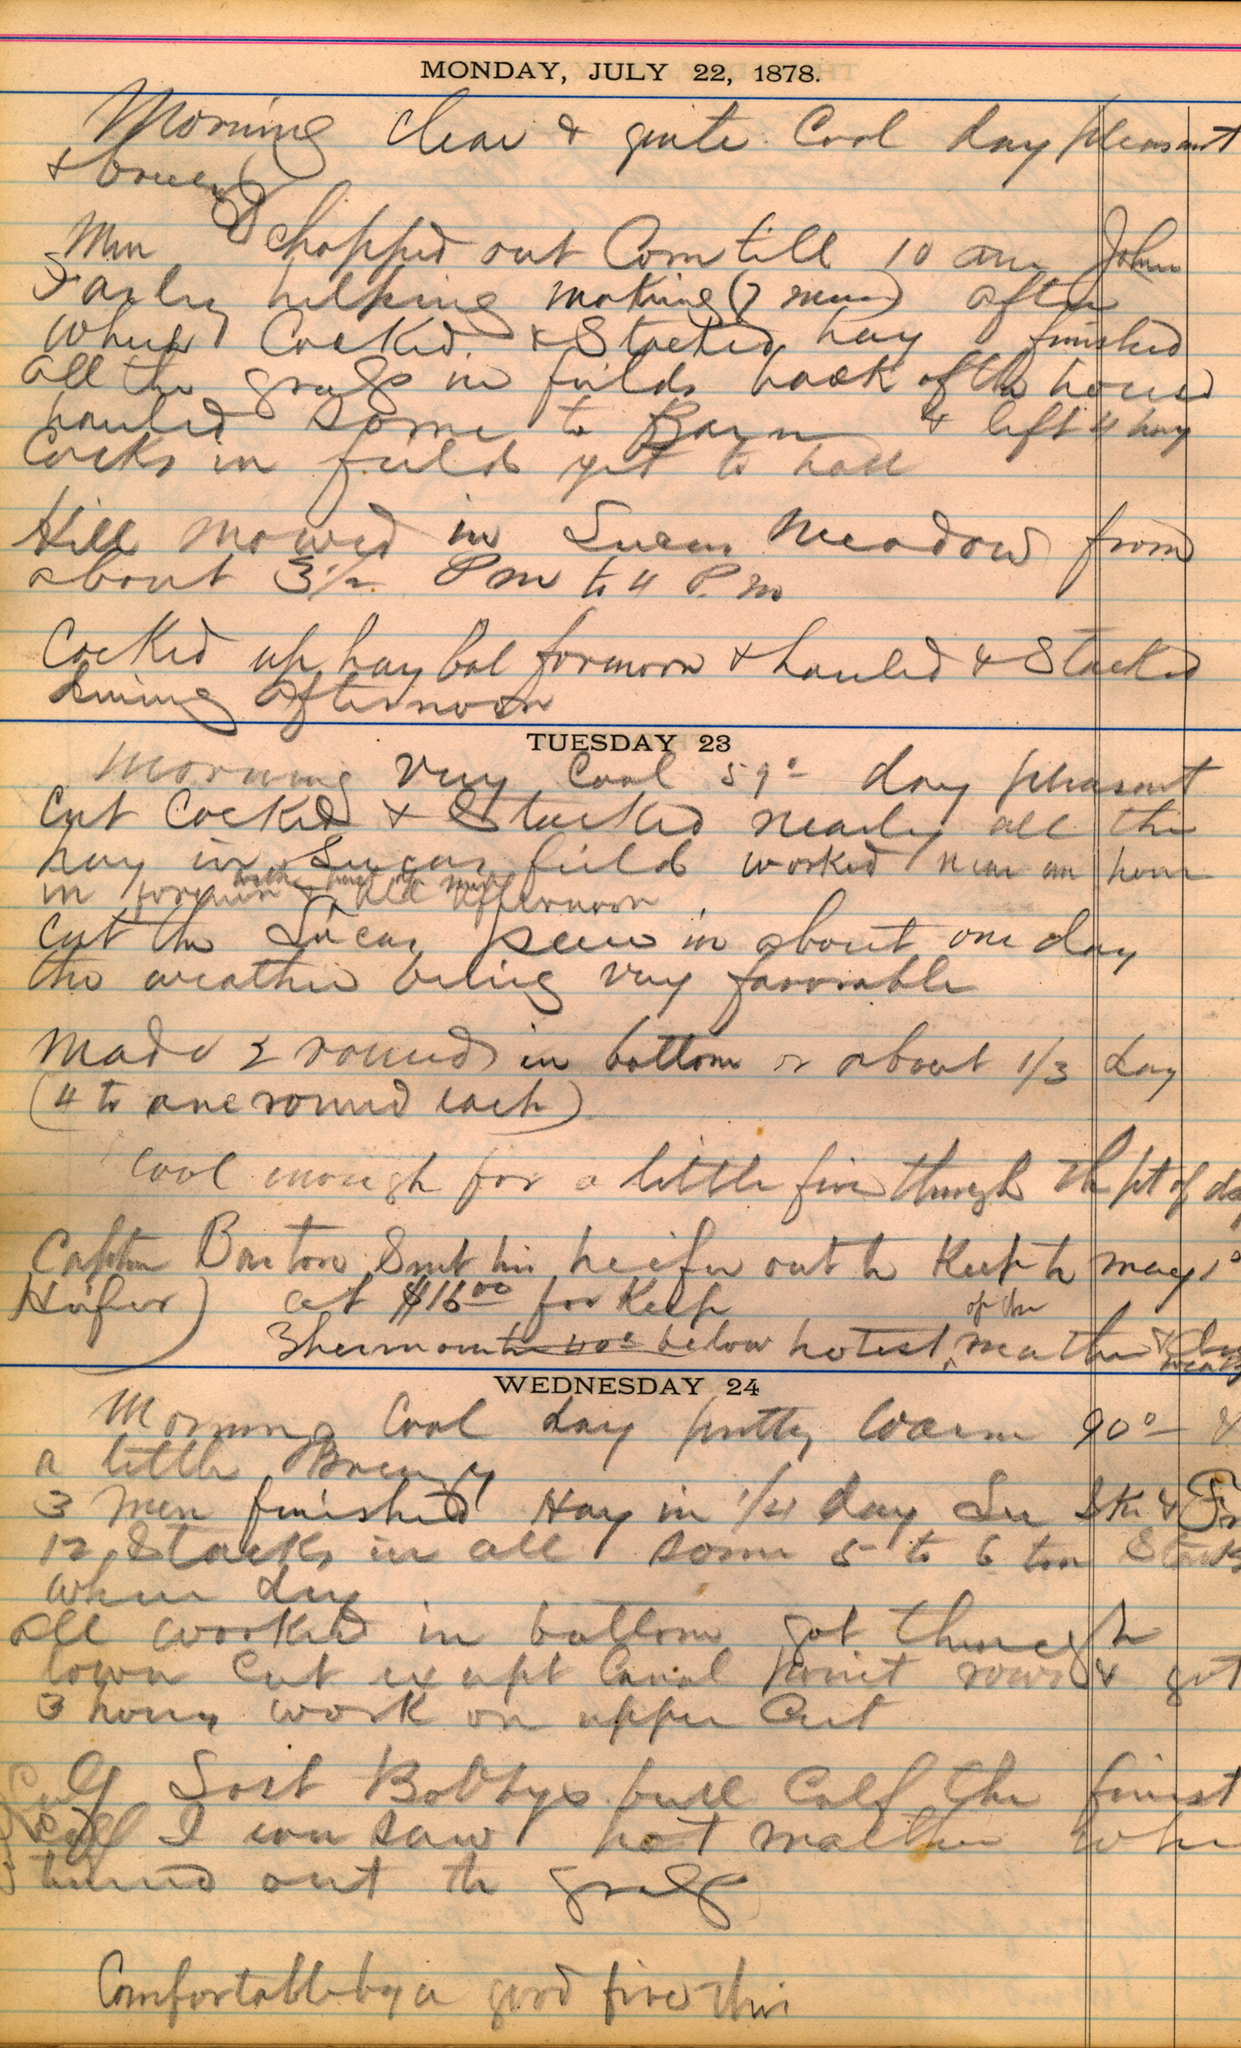 MONDAY, JULY 22, 1878.
Morning clear & quite Cool day pleasant
& breezy
Men chopped out Corn till 10 am John
helping making (7 men) after
which Cocked & Stacked hay finished
all the grass in fields back of the house
hauled some to Barn & left 4 hay
Cocks in field yet to hall
Hill mowed in Lucas Meadow from
about 3 1/2 Pm to 4 P.m
Cocked up hay bal forenoon & hauled & Stacked
during afternoon
TUESDAY 23
Morning very Cool 59° day pleasant
Cut Cocked & Stacked nearly all the
hay in Lucas field worked near an hour
in & all afternoon
Cut the Lucas in about one day
the weather being very favorable
Made 2 round in bottom or about 1/3 day
(4 to one round each)
Cool enough for a little fire through the pt of day
Capten Barton Sent his heifer out to Keep to may 1st
Heifer) at $16.00 for Keep
of the
Thermometer 40° below hotest weather &
WEDNESDAY 24
Morning Cool day pretty warm 90° &
a little Breezy
3 men finished Hay in 1/4 day
12 Stacks in all some 5 to 6 ton Stacks
when dry
all worked in bottom got through
lown Cut exept Canal point rows & got
3 hours work on upper Cut
Lost Bobbys bull Calf the finest
calf I ever saw hot weather when
turned out to grass
Comfortable by a good fire this